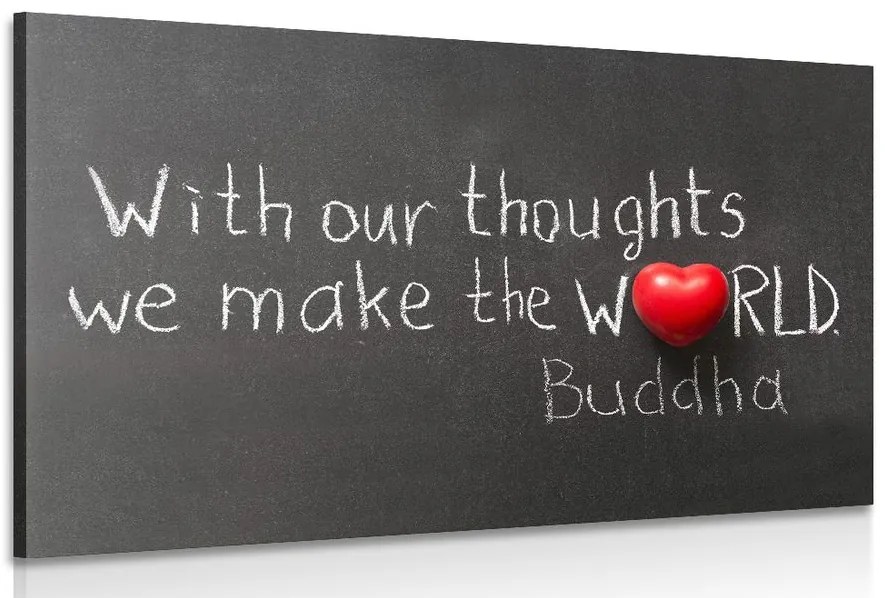 With our thoughts
we make the W❤RLD.
Buddha